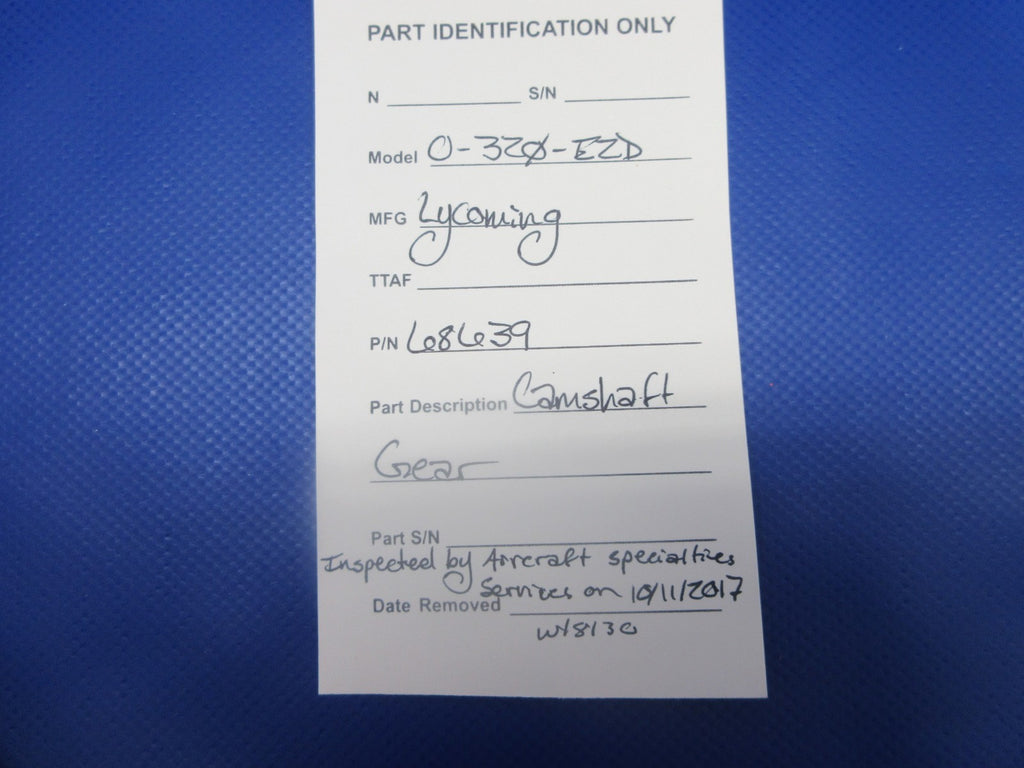 PART IDENTIFICATION ONLY
N S/N
Model O-320-E2D
MFG Lycoming
TTAF
P/N 68639
Part Description Camshaft
Gear
Part S/N
Inspected by Aircraft specialties
Services on 10/11/2017
Date Removed
w/8130